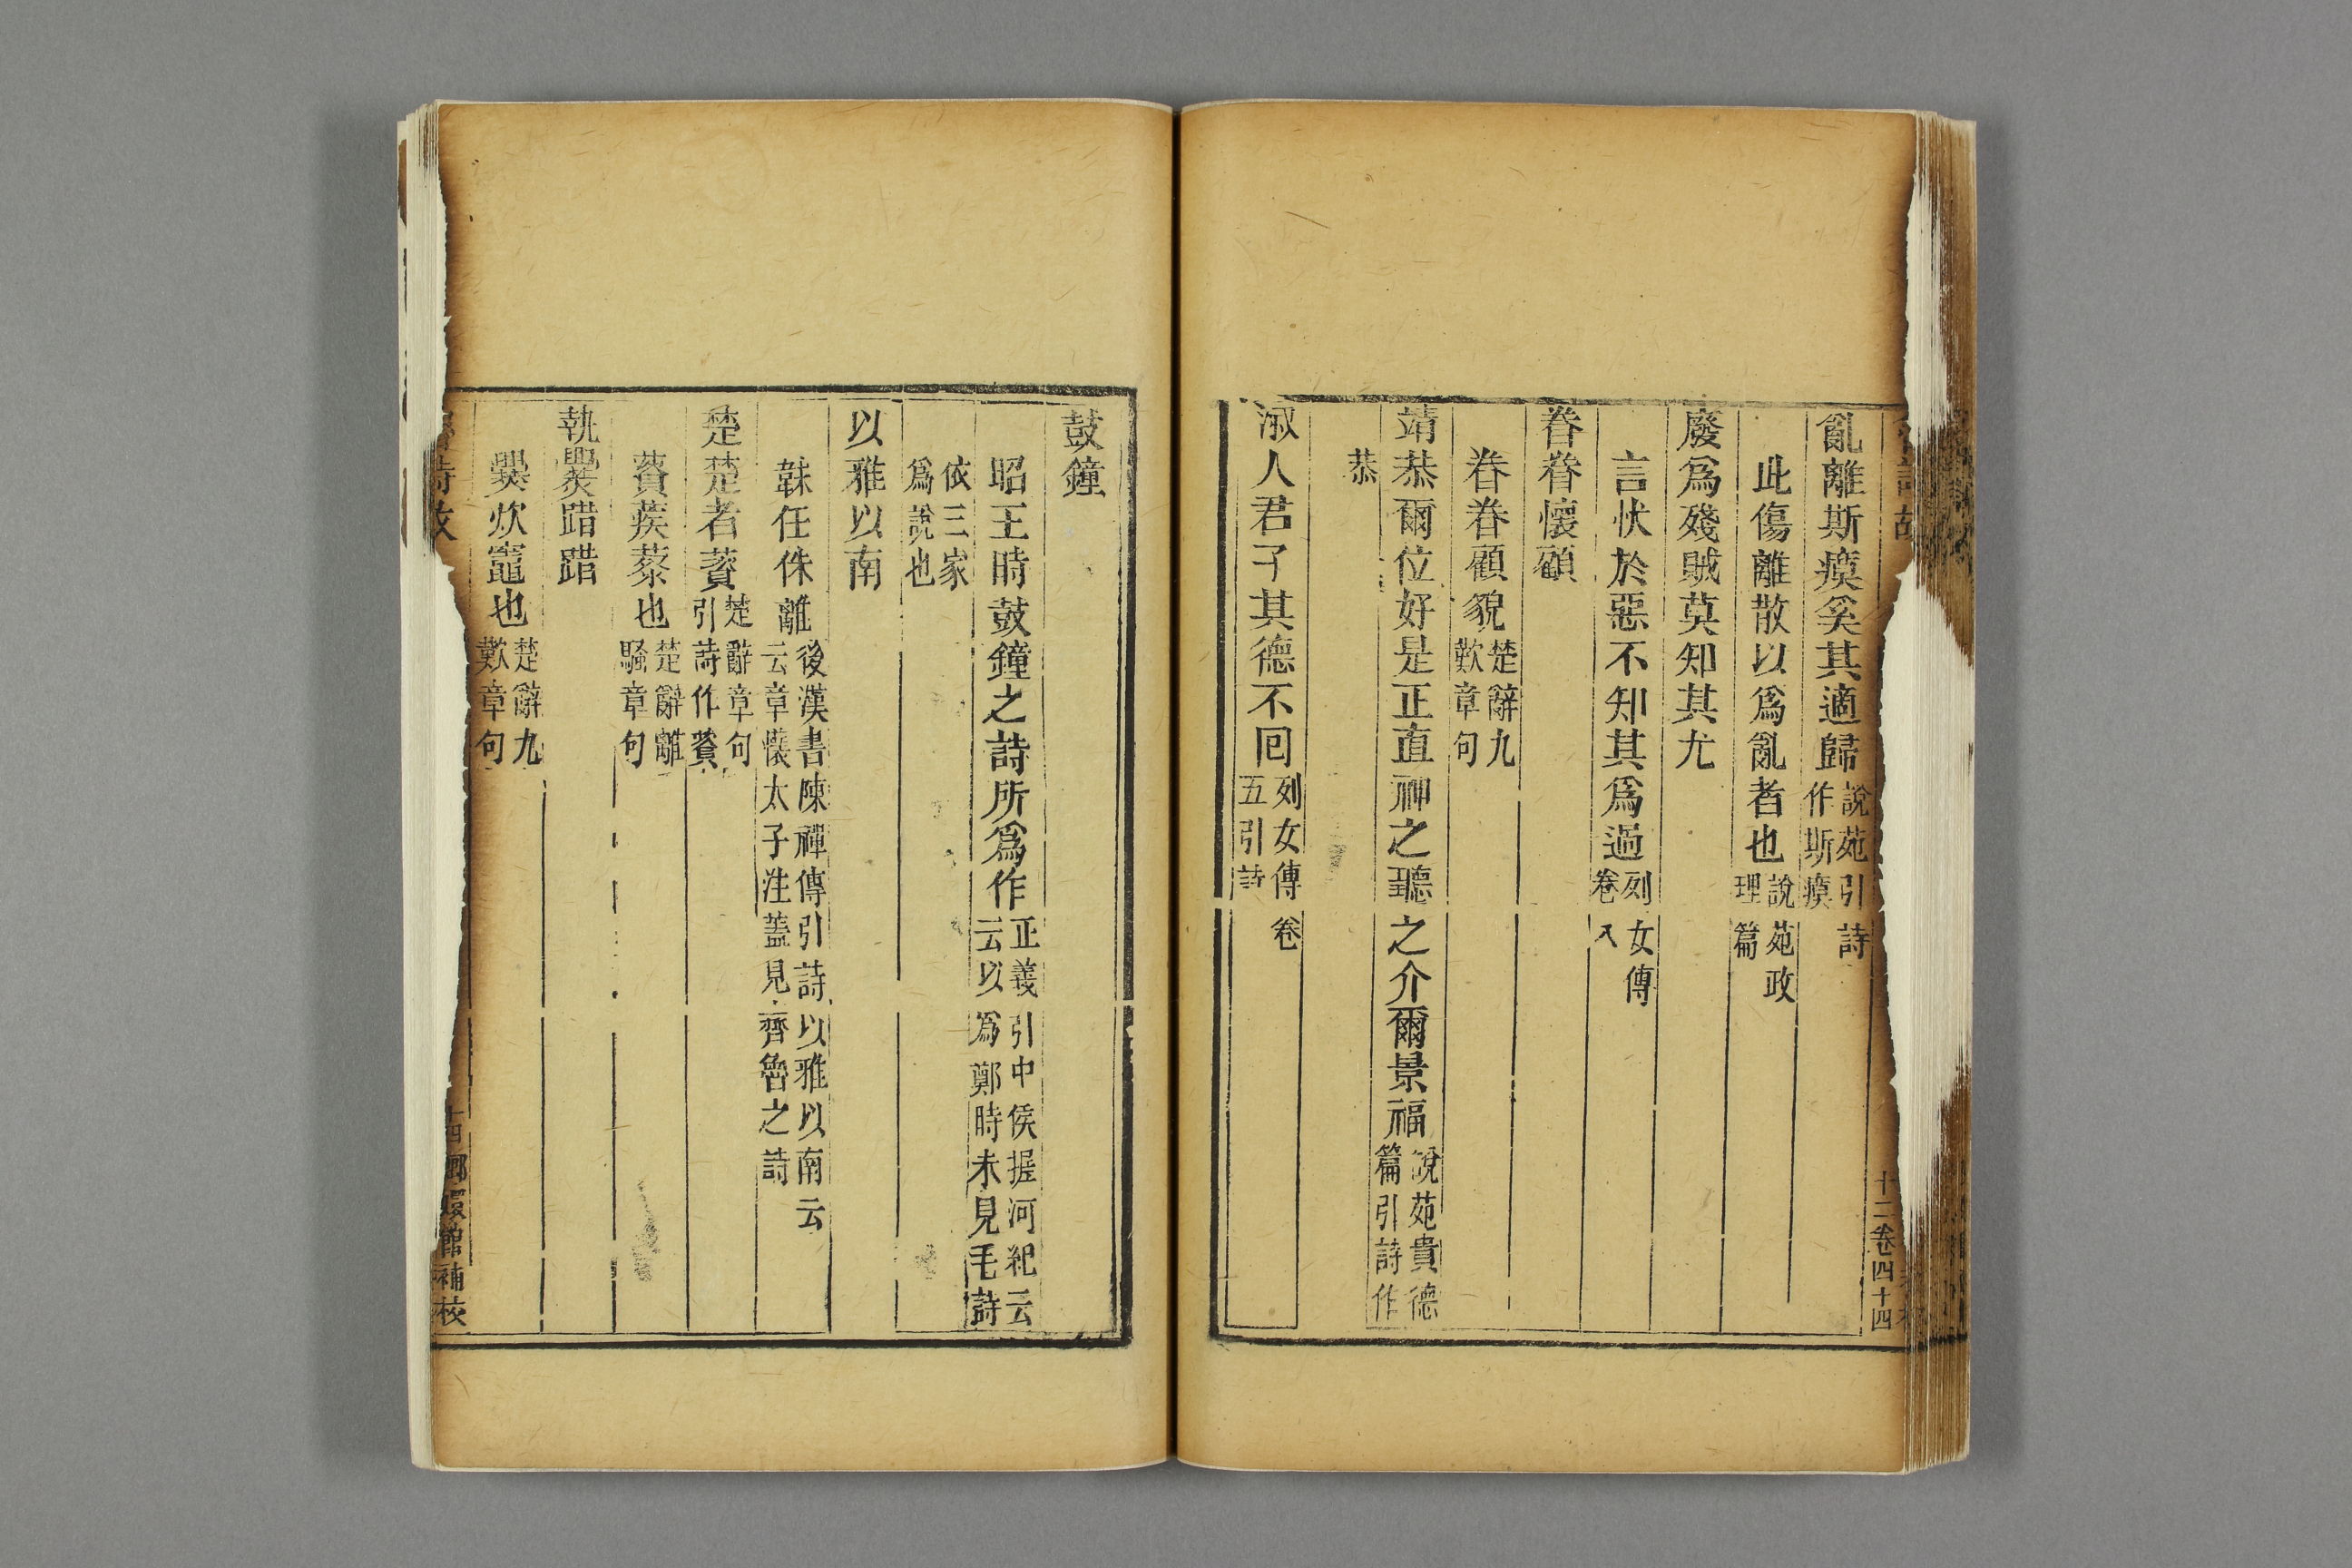 亂離斯瘼奚其適歸說苑引詩作斯瘼
此傷離散以爲亂者也說苑政理篇
廢爲殘賊莫知其尤
言忕於惡不知其爲過列女傳卷八
眷眷懷顧
眷眷顧貌楚辭九歎章句
靖恭爾位好是正直神之聽之介爾景福說苑貴德篇引詩作
恭
淑人君子其德不回列女傳卷五引詩
十二卷四十四
鼓鐘
昭王時鼓鐘之詩所爲作正義引中侯握河紀云云以爲鄭時未見毛詩
依三家爲說也
以雅以南
韎任侏離後漢書陳禪傳引詩以雅以南云云章懷太子注蓋見齊魯之詩
楚楚者薋楚辭章句引詩作薋
薋蒺藜也楚辭離騷章句
執爨踖踖
爨炊竈也楚辭九歎章句
詩故
十四
嫏嬛館補校